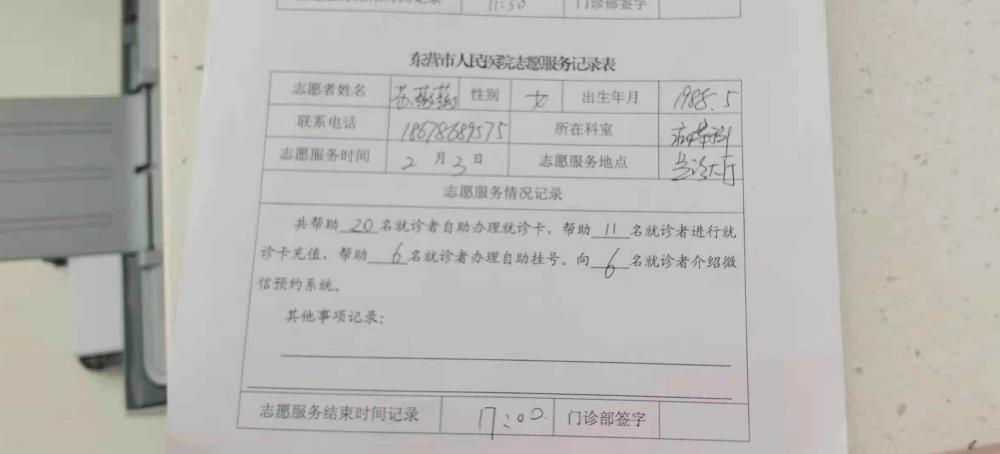 志愿服务结束时间记录 11:30 门诊部签字
东营市人民医院志愿服务记录表
志愿者姓名 性别 女 出生年月 1988.5
联系电话 18678689575 所在科室
志愿服务时间 2月3日 志愿服务地点 门诊大厅
志愿服务情况记录
共帮助 20 名就诊者自助办理就诊卡，帮助 11 名就诊者进行就
诊卡充值，帮助 6 名就诊者办理自助挂号，向 6 名就诊者介绍微
信预约系统。
其他事项记录：
志愿服务结束时间记录 17:00 门诊部签字